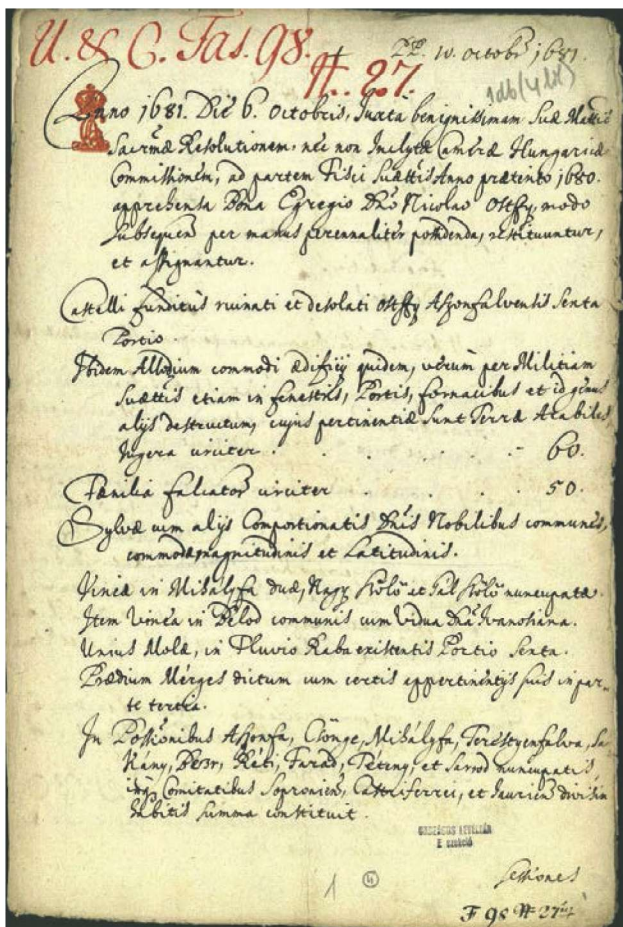 U. & C. Fas. 98. PP. 10. octobr 1681.
N. 27. 1db (4 lit)
Anno 1681. Die 6. Octobris, Juxta benignissimam Suæ Mattis
Sacrmæ Resolutionem, nec non Inclytæ Cameræ Hungaricæ
Commissionem, ad partem Fisci Suættis Anno prætento 1680.
apprehensa Bona Egregio Dno Nicolao Ostffy, modo
subsequen per manus perennaliter possidenda, restituuntur,
et assignantur.
Castelli funditus ruinati et desolati Ostffy Aszonfalvensis Senta
Portio
Ibidem Allodium commodi ædificij quidem, verum per Militiam
Suættis etiam in fenestris, Portis, fornacibus et id genus
alijs destructum, cujus pertinentiæ sunt Terræ Arabiles
Iugera circiter . . . . . 60.
Fænilia falcator circiter . . . 50.
Sylvæ cum alijs Comportionatis Dnis Nobilibus communes,
commodæ magnitudinis et Latitudinis.
Vineæ in Mihályfa duæ, Nagy Szölö et Pal Szölö nuncupatæ.
Item Vinea in Délod communis cum Vidua Dna Ivanosiana.
Unius Molæ, in Fluvio Raba existentis Portio Senta.
Prædium Mérges dictum cum certis appertinentijs suis in par-
te tertia.
In Possionibus Aszonfa, Csönge, Mihályfa, Terestyenfalva, Sa-
kány, Péor, Réti, Farád, Téteny, et Sarod nuncupatis,
inq Comitatibus Soproniен, Castriferrei, et Jaurien divisim
habitis summa constituit.
ORSZÁGOS LEVÉLTÁR
E szekció
Sessiones
1 4
F 98 N 27